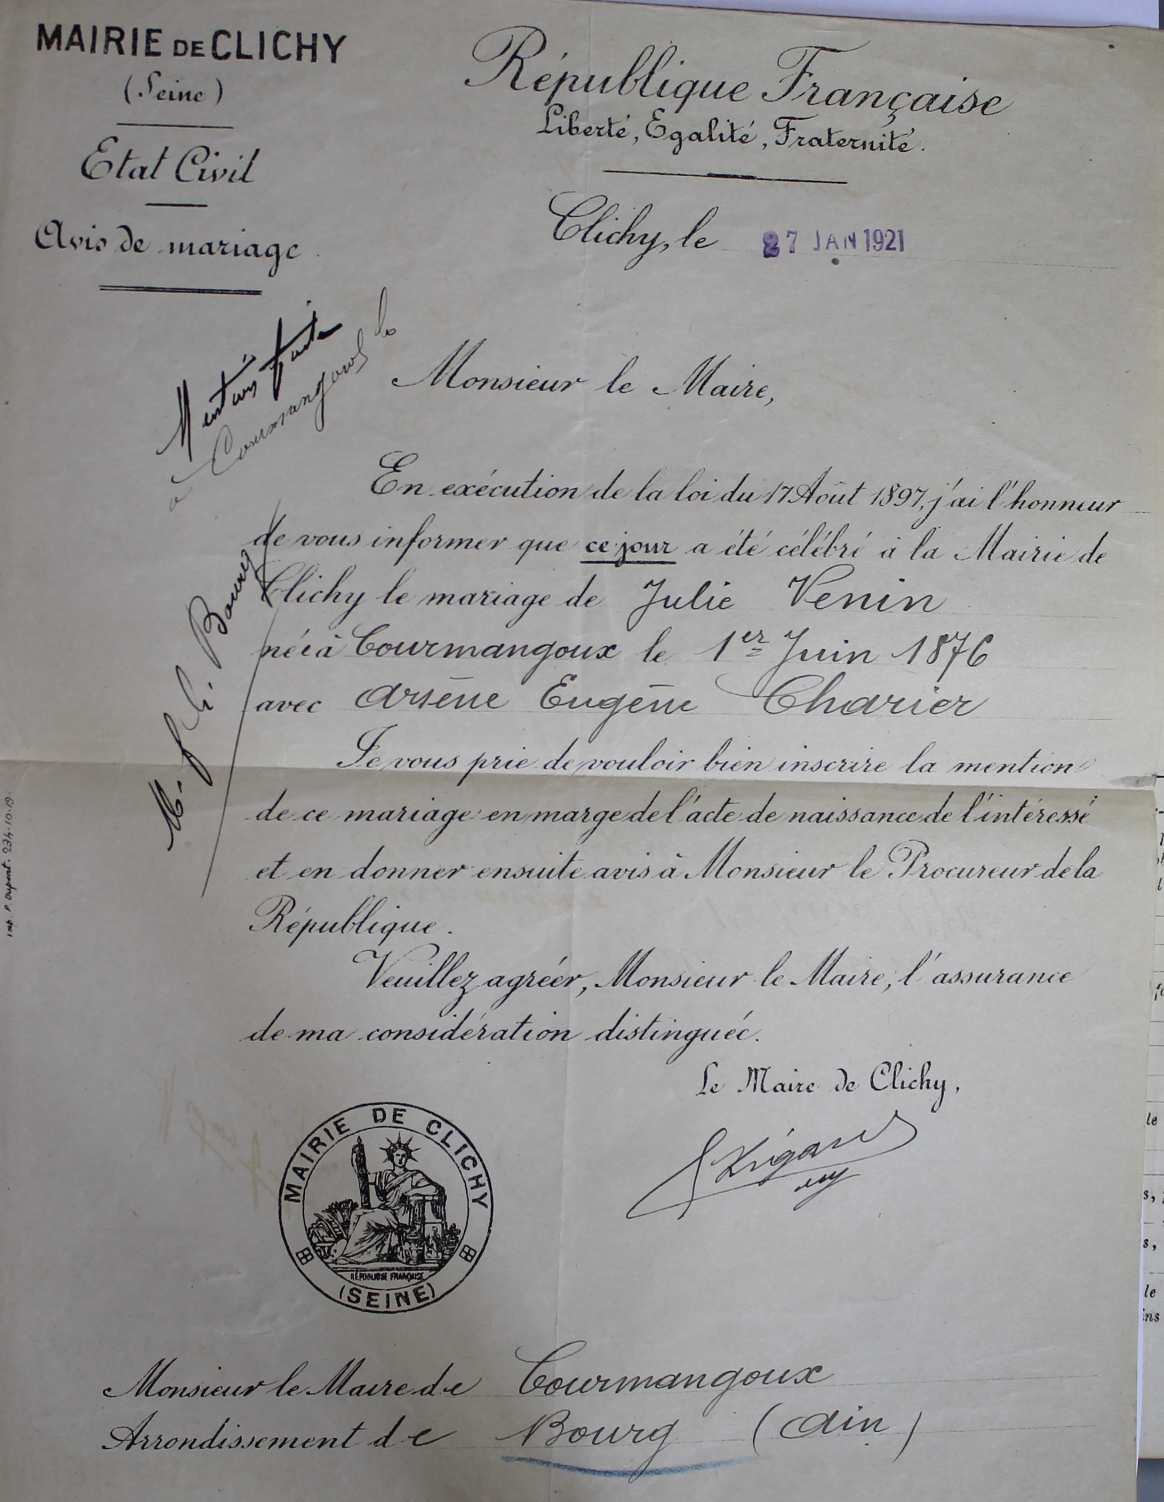 MAIRIE DE CLICHY
(Seine)
Etat Civil
Avis de mariage
République Française
Liberté, Egalité, Fraternité.
Clichy, le 27 JAN 1921
Mention faite
à Courmangoux le
Monsieur le Maire,
En exécution de la loi du 17 Août 1897, j'ai l'honneur
de vous informer que ce jour a été célébré à la Mairie de
Clichy le mariage de Julie Venin
né à Courmangoux le 1er Juin 1876
avec Arsène Eugène Charier
Je vous prie de vouloir bien inscrire la mention
de ce mariage en marge de l'acte de naissance de l'intéressé
et en donner ensuite avis à Monsieur le Procureur de la
République.
Veuillez agréer, Monsieur le Maire, l'assurance
de ma considération distinguée.
Bourg
Le Maire de Clichy,
MAIRIE DE CLICHY
RÉPUBLIQUE FRANÇAISE
(SEINE)
Monsieur le Maire de Courmangoux
Arrondissement de Bourg (Ain)
Imp. P. Dupont. 234.10.19